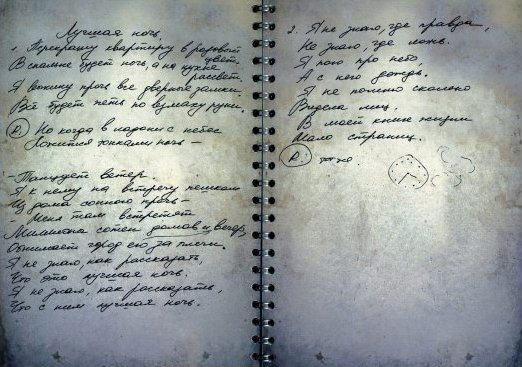 Лучшая ночь.
1. Перекрашу квартиру в розовый цвет.
В спальне будет ночь, а на кухне
рассвет.
Я выкину прочь все дверные замки.
Всё будет петь по взмаху руки.
Ⓟ. Но когда в ладони с небес
Ложится тонками ночь –
– Танцует ветер.
Я к нему на встречу пешком
Из дома сонного прочь –
– Меня там встретят
Миллионы сотен домов и вечер,
Обнимает город его за плечи.
Я не знаю, как рассказать,
Что это лучшая ночь.
Я не знаю, как рассказать,
Что с ним лучшая ночь.
2. Я не знаю, где правда,
Не знаю, где ложь.
Я пою про небо,
А с него дождь.
Я не помню сколько
Видела лиц,
В моей книге жизни
Мало страниц.
Ⓟ.